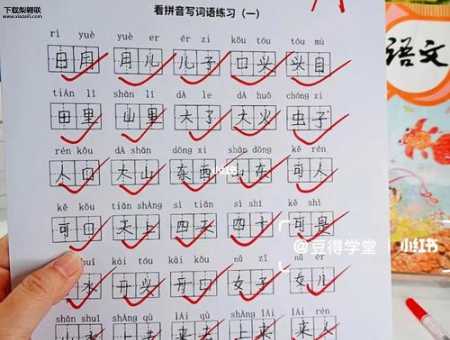 看拼音写词语练习（一）
rì yuè yuè er ér zi kǒu tóu tóu mù
日月 月儿 儿子 口头 头目
tián lǐ shān lǐ dà le dà huǒ chóng zi
田里 山里 大了 大火 虫子
rén kǒu dà shān dōng xi shān dōng kě rén
人口 大山 东西 山东 可人
kě kǒu tiān shàng sì tiān sì shí kě shì
可口 天上 四天 四十 可是
shuǐ kāi tóu kāi kǒu nǚ zǐ nǚ ér
水 开头 开口 女子 女儿
shān shuǐ shàng qù lái qù shàng lái lái rén
山水 上去 来去 上来 来人
语文
@豆得学堂
小红书